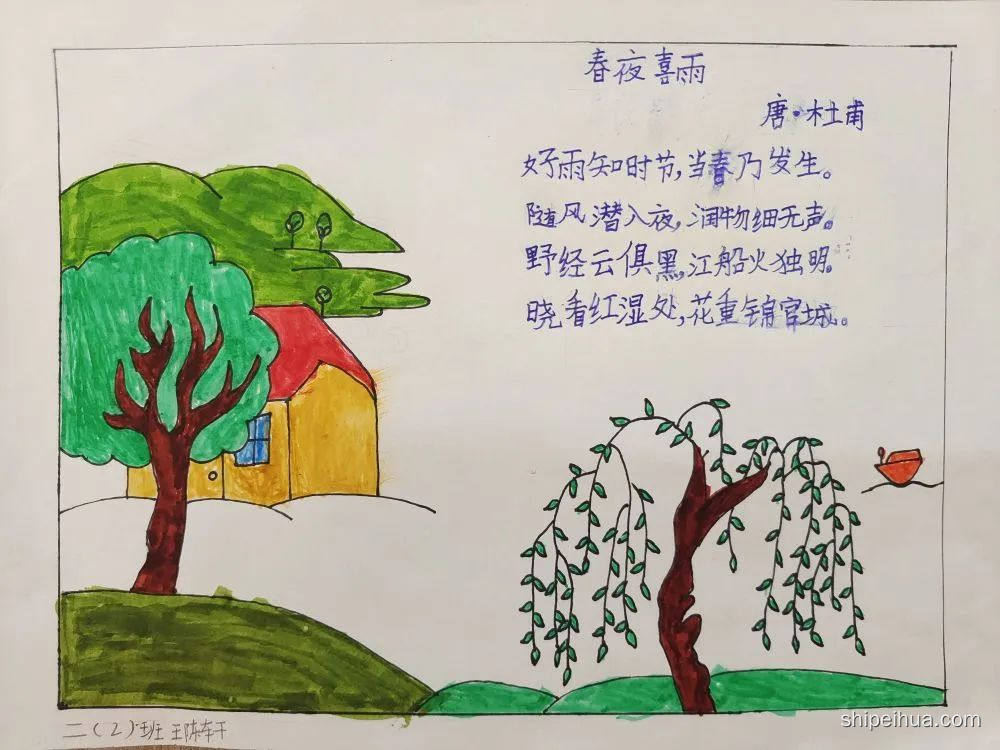 春夜喜雨
唐·杜甫
好雨知时节,当春乃发生。
随风潜入夜,润物细无声。
野径云俱黑,江船火独明。
晓看红湿处,花重锦官城。
二(2)班 王陈轩
shipeihua.com